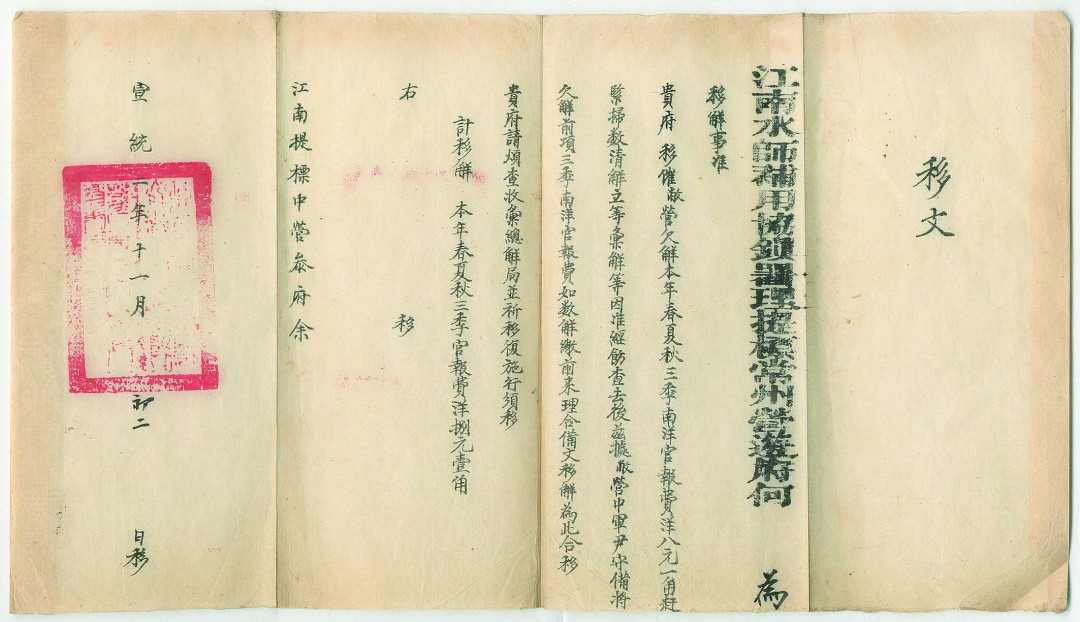 移文
江南水師補用協鎮署理提標常州營遊府何 為
移解事准
貴府 移催敝營欠解本年春夏秋三季南洋官報費洋八元一角赶
緊掃数清解立等彙解等因准經飭查去後茲據敝營中軍尹守備將
欠解前項三季南洋官報費如数解繳前来理合備文移解為此合移
貴府請煩查收彙總解局並祈移復施行須移
計移解 本年春夏秋三季官報費洋捌元壹角
右 移
江南提標中營叅府余
宣統二年十一月 初二 日移